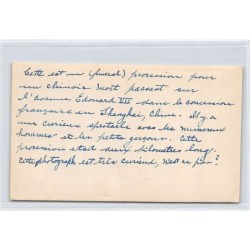 Cette est un (funeral) procession pour
un chinois mort passant sur
l'avenue Edouard VII dans la concession
française en Shanghai, China. Il y a
une curieux spectacle avec les
hommes et les petits garçons. Cette
procession etait deux kilometres long.
Cette photograph est très curieux, n'est ce pas?